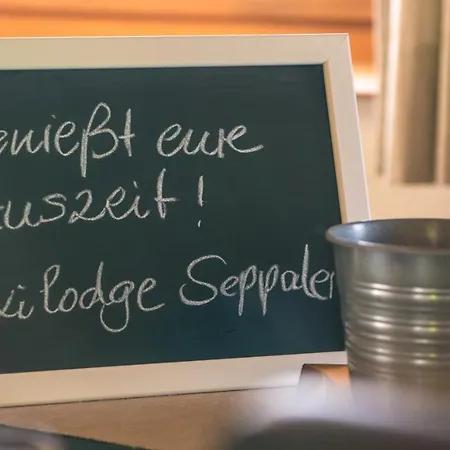 enießt eure
uszeit!
ki lodge Seppaler